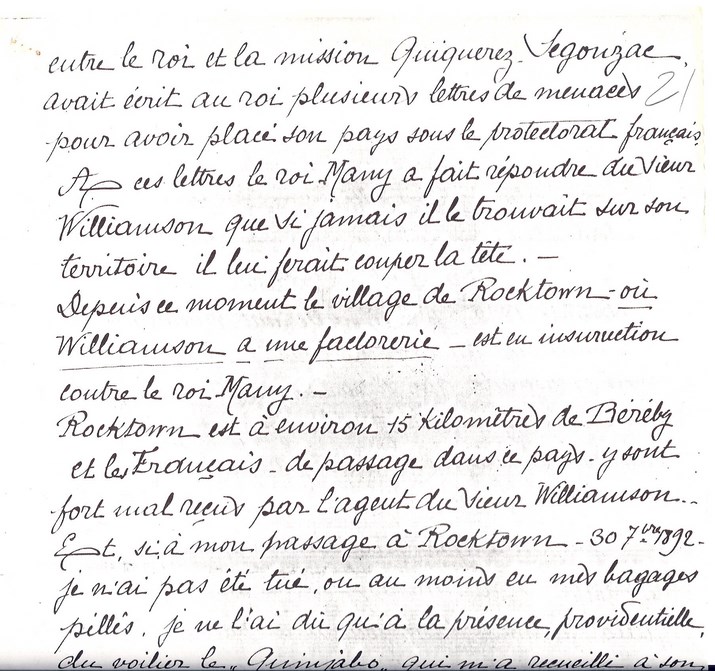 entre le roi et la mission Quiquerez-Segonzac,
avait écrit au roi plusieurs lettres de menaces 21
pour avoir placé son pays sous le protectorat français.
A ces lettres le roi Many a fait répondre du Sieur
Williamson que si jamais il le trouvait sur son
territoire il lui ferait couper la tête. —
Depuis ce moment le village de Rocktown - où
Williamson a une factorerie - est en insurrection
contre le roi Many. —
Rocktown est à environ 15 Kilomètres de Béréby
et les Français - de passage dans ce pays - y sont
fort mal reçus par l'agent du Sieur Williamson..
Et, si à mon passage à Rocktown - 30 7bre 1892 -
je n'ai pas été tué, ou au moins eu mes bagages
pillés, je ne l'ai dû qu'à la présence, providentielle,
du voilier le "Quinjabo" qui m'a recueilli à son